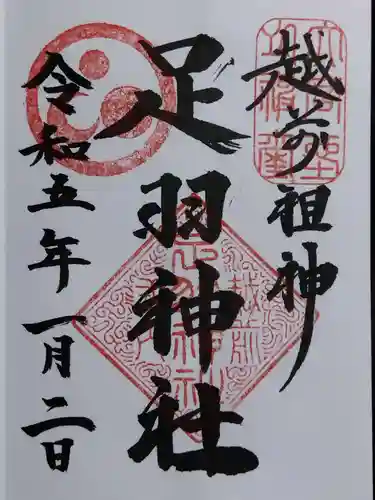 越前祖神
足羽神社
令和五年一月二日